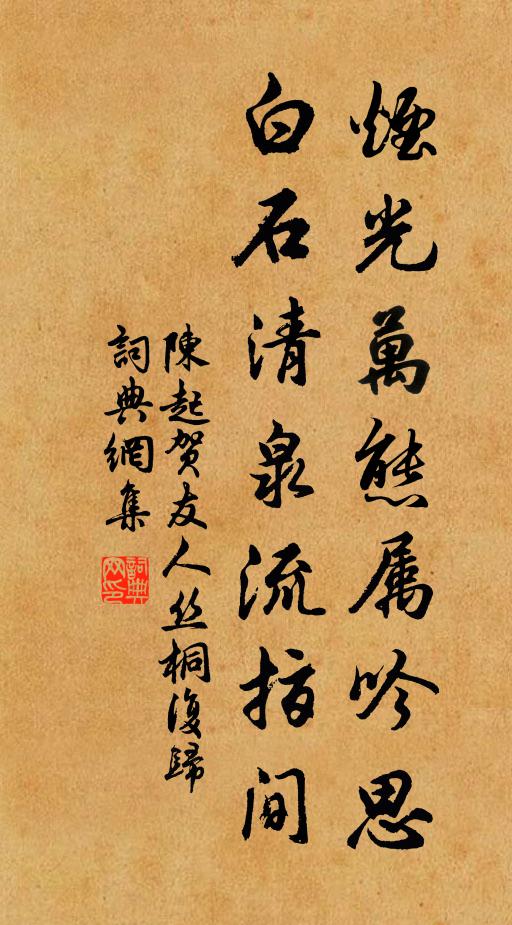 煙光萬態属吟思
白石清泉流指间
陳起贺友人丝桐復歸
詞典網集
詞典网印